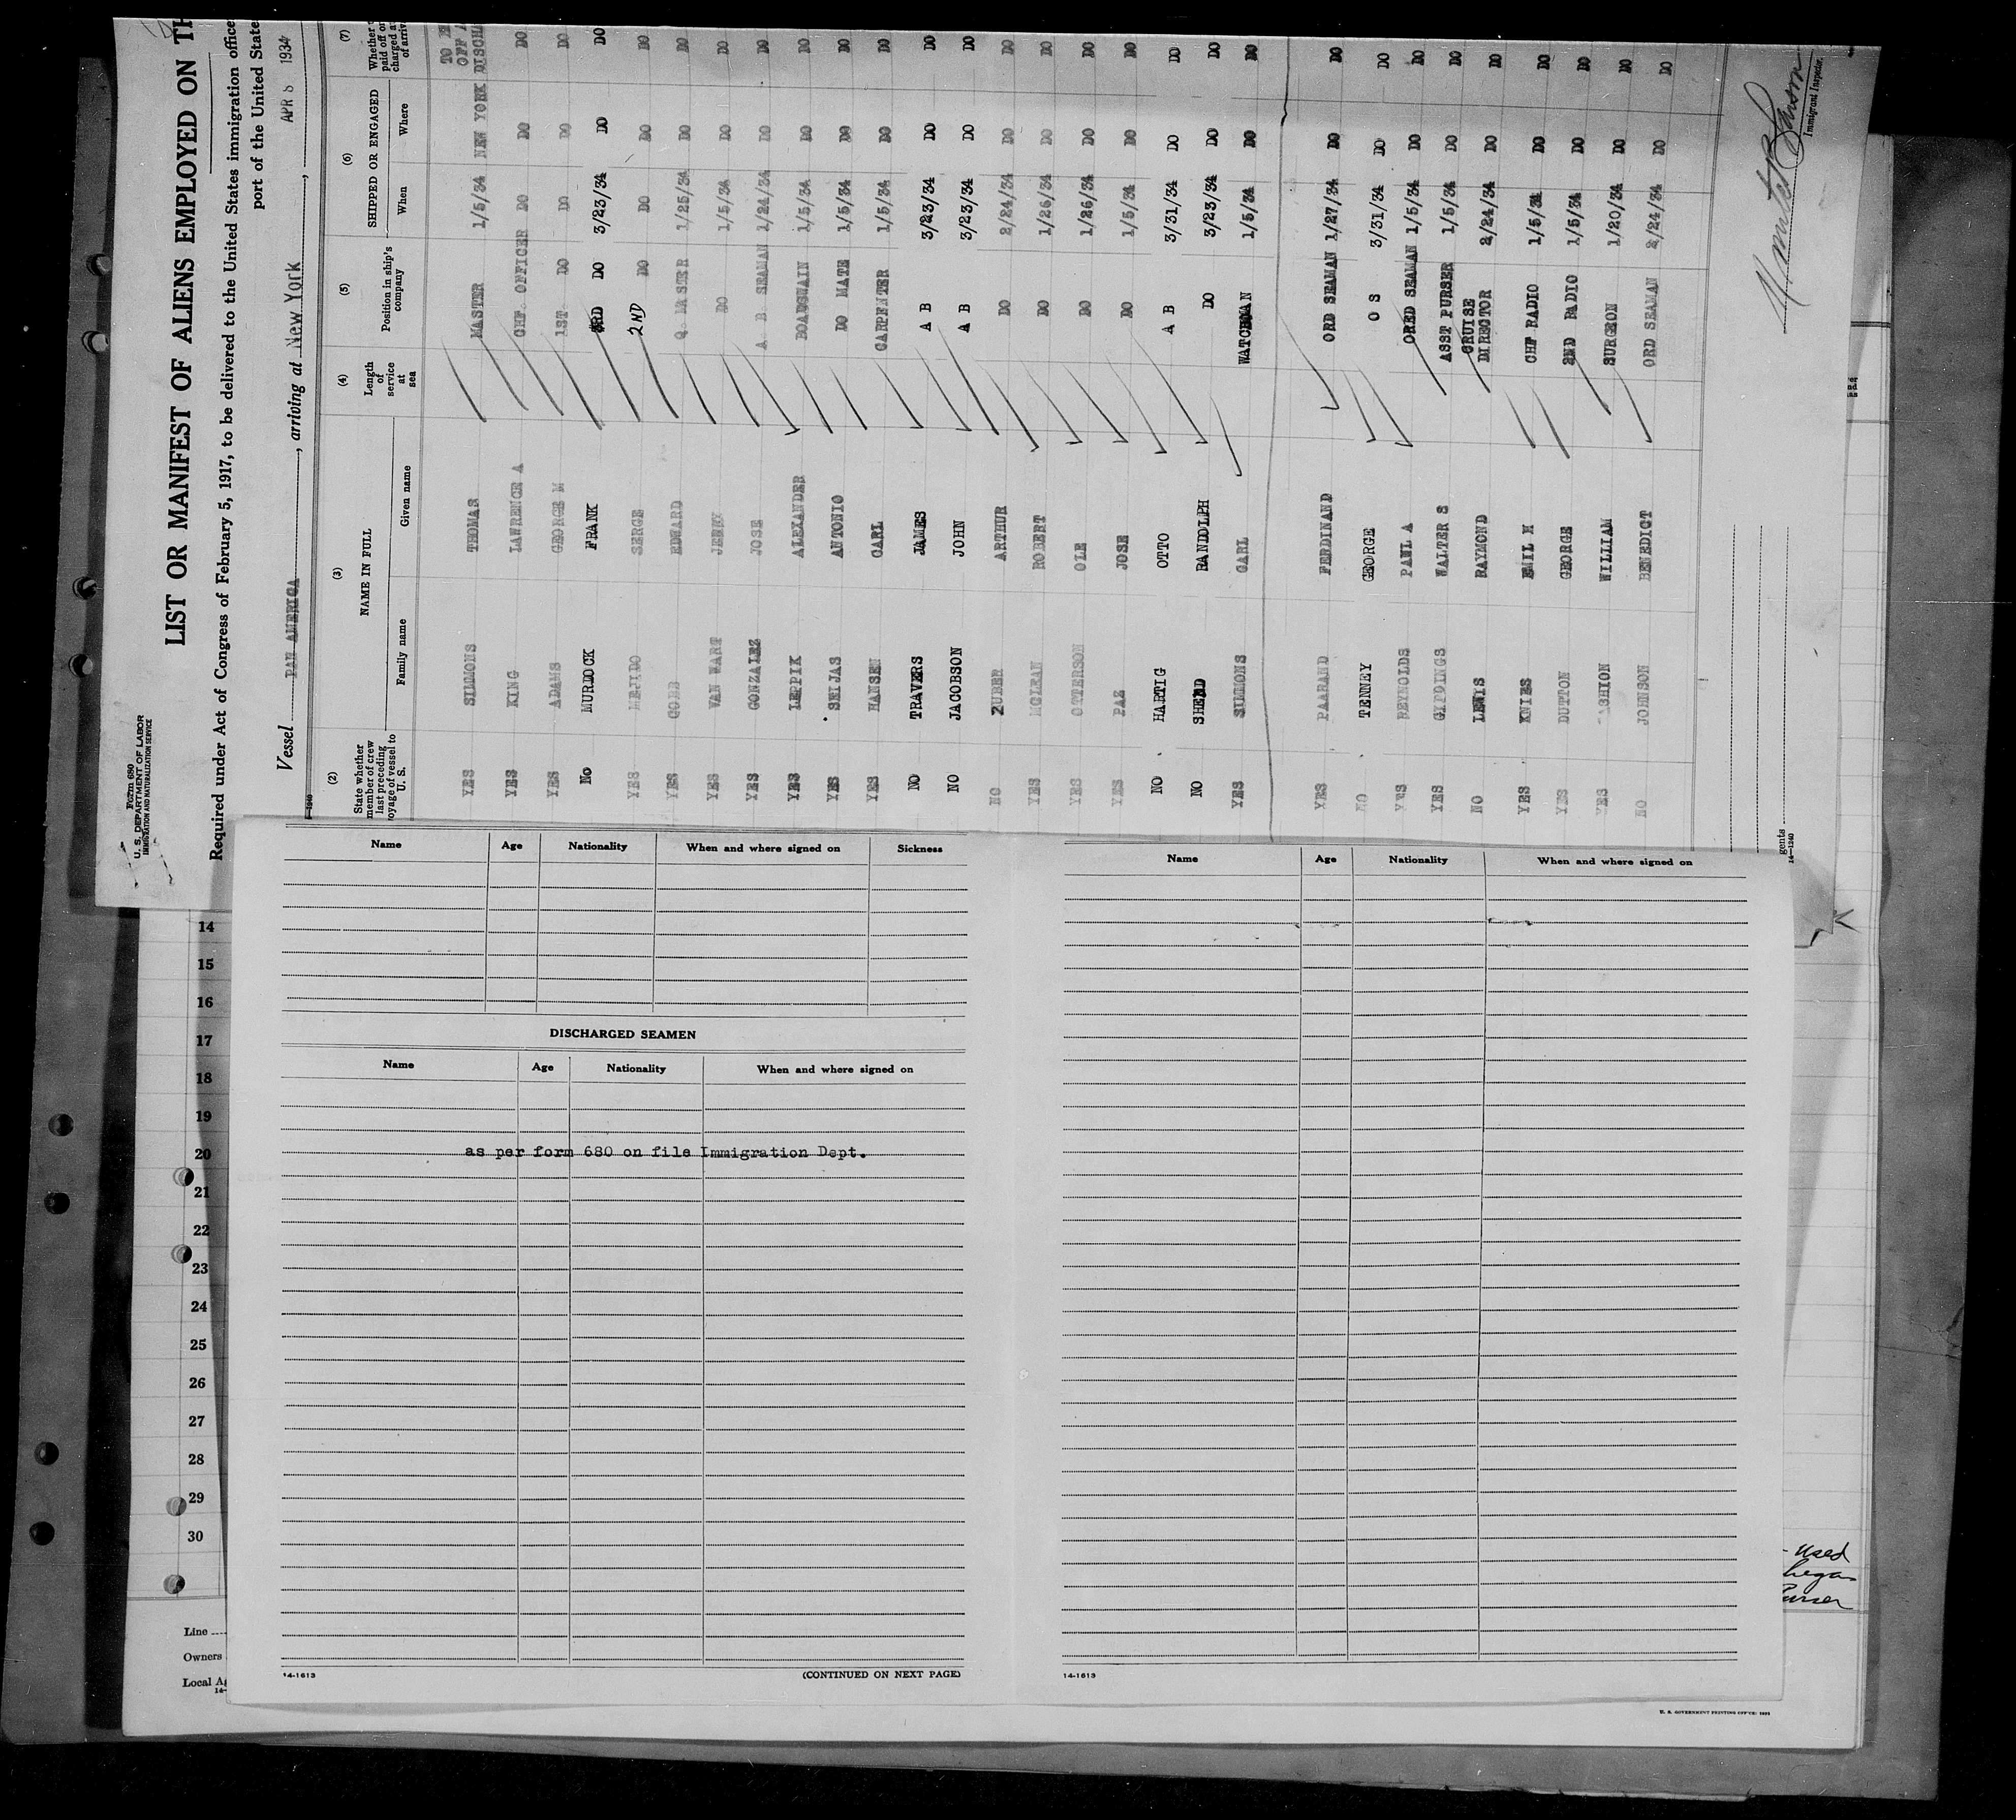 Form 680
U. S. DEPARTMENT OF LABOR
IMMIGRATION AND NATURALIZATION SERVICE
LIST OR MANIFEST OF ALIENS EMPLOYED ON TH
Required under Act of Congress of February 5, 1917, to be delivered to the United States immigration office
port of the United State
Vessel PAN AMERICA, arriving at New York, APR 8 1934
(2) (3) (4) (5) (6) (7)
State whether member of crew last preceding voyage of vessel to U. S.
NAME IN FULL
Family name Given name
Length of service at sea
Position in ship's company
SHIPPED OR ENGAGED
When Where
Whether paid off or charged a of arriv
YES SIMMONS THOMAS MASTER 1/5/34 NEW YORK DISCHA
YES KING LAWRENCE A CHF. OFFICER DO DO DO
YES ADAMS GEORGE M 1ST DO DO DO DO
No MURDOCK FRANK 3RD DO 3/23/34 DO DO
YES MEJIDO SERGE 2ND DO DO DO DO
YES COBB EDWARD Q. MASTER 1/25/34 DO DO
YES VAN WART JENNY DO 1/5/34 DO DO
YES GONZALEZ JOSE A. B. SEAMAN 1/24/34 DO DO
YES LEPPIK ALEXANDER BOATSWAIN 1/5/34 DO DO
YES SEIJAS ANTONIO DO MATE 1/5/34 DO DO
YES HANSEN CARL CARPENTER 1/5/34 DO DO
NO TRAVERS JAMES A B 3/23/34 DO DO
NO JACOBSON JOHN A B 3/23/34 DO DO
NO ZUBER ARTHUR DO 2/24/34 DO DO
YES MCLEAN ROBERT DO 1/26/34 DO DO
YES OTTERSON OLE DO 1/26/34 DO DO
YES PAZ JOSE DO 1/5/34 DO DO
NO HARTIG OTTO A B 3/31/34 DO DO
NO SHEND RANDOLPH DO 3/23/34 DO DO
YES SIMMONS CARL WATCHMAN 1/5/34 DO DO
YES PAARAND FERDINAND ORD SEAMAN 1/27/34 DO DO
NO TENNEY GEORGE O S 3/31/34 DO DO
YES REYNOLDS PAUL A ORED SEAMAN 1/5/34 DO DO
YES GIDDINGS WALTER S ASST PURSER 1/5/34 DO DO
NO LEWIS RAYMOND CRUISE DIRECTOR 2/24/34 DO DO
YES KNIES EMIL H CHF RADIO 1/5/34 DO DO
YES DUTTON GEORGE 2ND RADIO 1/5/34 DO DO
YES CASHION WILLIAM SURGEON 1/20/34 DO DO
NO JOHNSON BENEDICT ORD SEAMAN 2/24/34 DO DO
Immigrant Inspector.
gents
14—1240
Name Age Nationality When and where signed on Sickness
DISCHARGED SEAMEN
Name Age Nationality When and where signed on
as per form 680 on file Immigration Dept.
14-1613
(CONTINUED ON NEXT PAGE)
Name Age Nationality When and where signed on
14-1613
14
15
16
17
18
19
20
21
22
23
24
25
26
27
28
29
30
Line
Owners
Local Ag
14-
used
U. S. GOVERNMENT PRINTING OFFICE: 1931